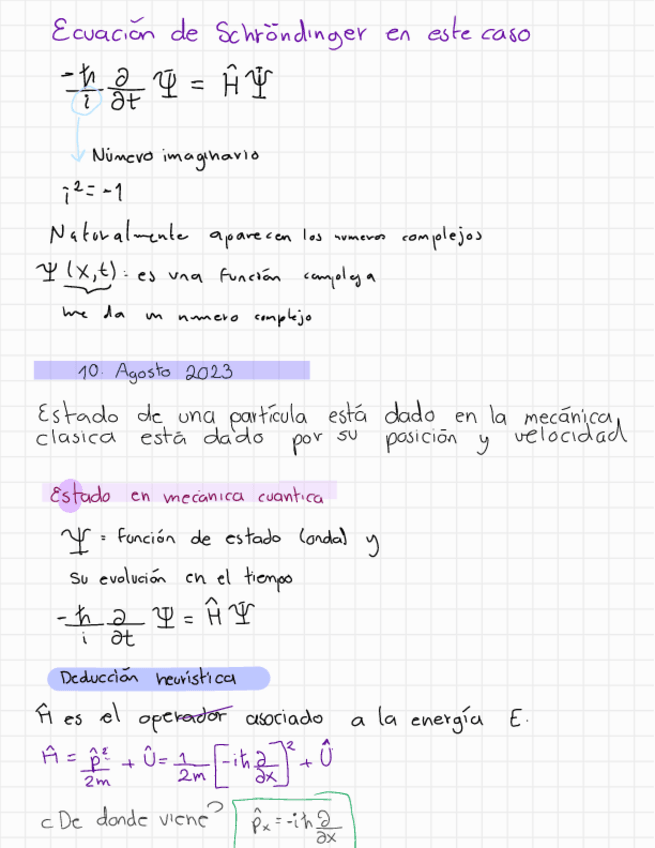 Ecuación de Schröndinger en este caso
-ħ/i ∂/∂t Ψ = Ĥ Ψ
Número imaginario
i² = -1
Naturalmente aparecen los numeros complejos
Ψ (x,t) : es una función compleja
me da un numero complejo
10. Agosto 2023
Estado de una partícula está dado en la mecánica
clasica está dado por su posición y velocidad
Estado en mecánica cuantica
Ψ = Función de estado (onda) y
su evolución en el tiempo
-ħ/i ∂/∂t Ψ = Ĥ Ψ
Deducción heurística
Ĥ es el operador asociado a la energía E.
Ĥ = p̂²/2m + Û = 1/2m [-iħ ∂/∂x]² + Û
¿De donde viene? p̂ₓ = -iħ ∂/∂x